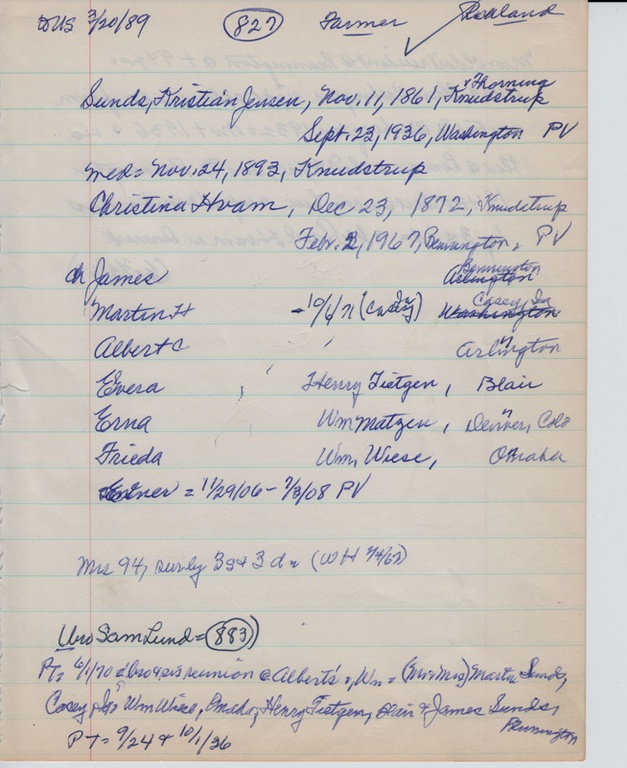 3/20/89 827 Farmer Rowland
& Thorning
Sunds, Kristian Jensen, Nov. 11, 1861, Knudstrup
Sept. 23, 1936, Washington PV
med = Nov. 24, 1893, Knudstrup
Christina Hvam, Dec 23, 1872, Knudstrup
Febr. 2, 1967, Bennington, PV
Bennington
ch James Arlington
Casey, Ia
Martin H - 10/6/71 (Casey Ia) Washington
Albert C " Arlington
Evera , Henry Tietgen, Blair
Erna Wm Matzen, Denver, Colo
Frieda Wm. Wiese, Omaha
Enner = 11/29/06 - 7/3/08 PV
Mrs 94, surv by 3 s & 3 d = (WH 2/4/67)
Uro Sam Lund = 883
PT = 6/1/70 bro & sis reunion @ Albert's, Wn = (Mr & Mrs) Martin Sunds,
Casey Wm Wiese, Omaha, Henry Tietgen, Blair & James Sunds,
Bennington
PT = 9/24 & 10/1/36